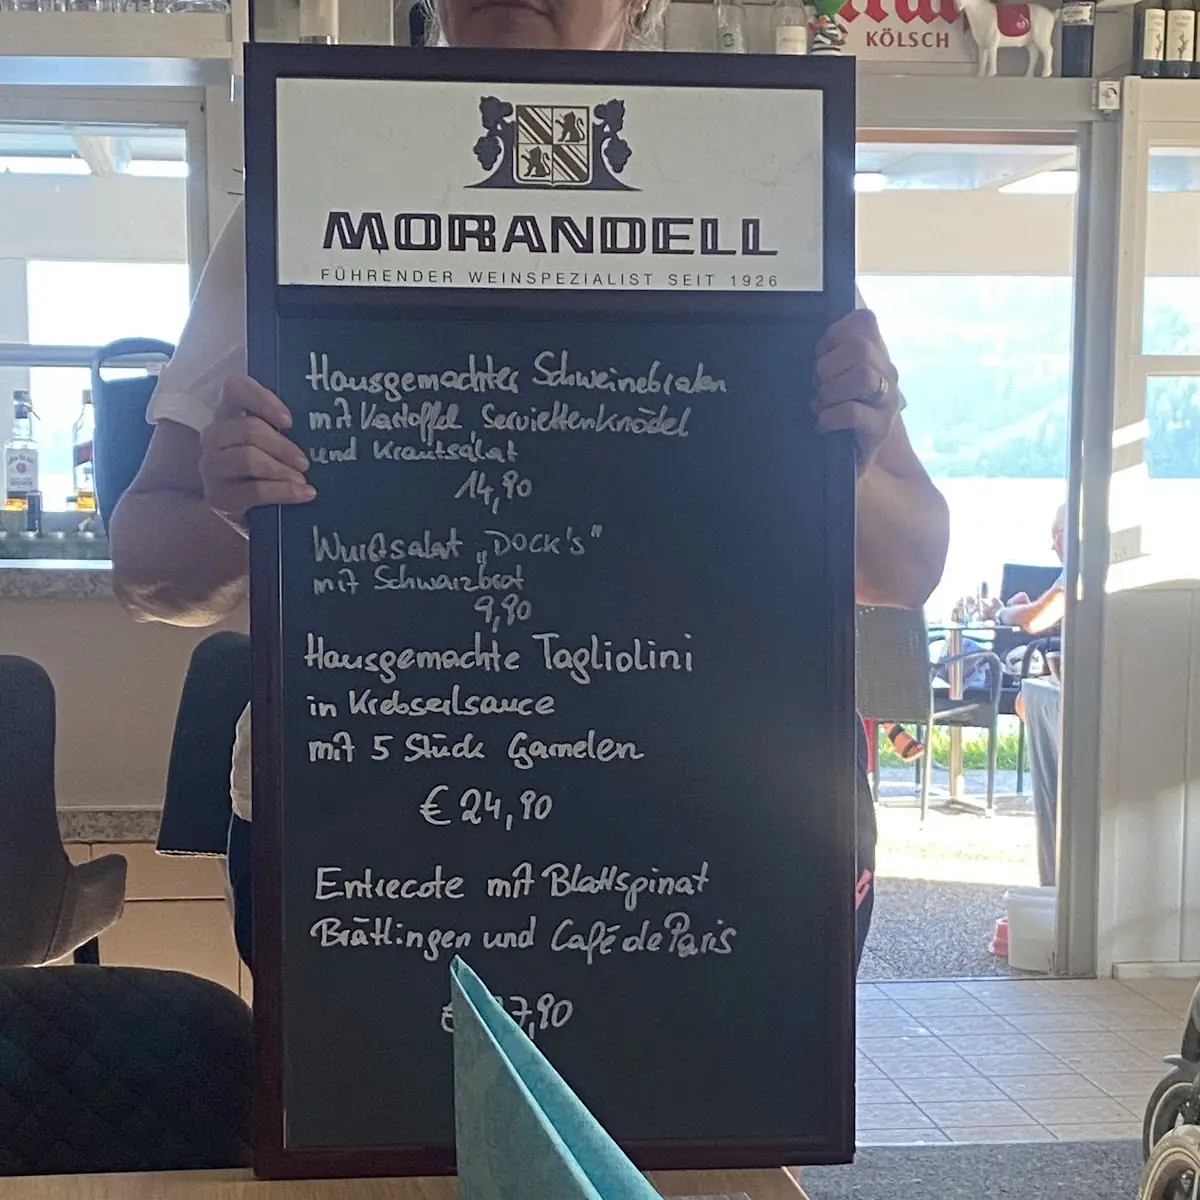 KÖLSCH
MORANDELL
FÜHRENDER WEINSPEZIALIST SEIT 1926
Hausgemachter Schweinebraten
mit Kartoffel, Serviettenknödel
und Krautsalat
14,90
Wurstsalat „DOCK's"
mit Schwarzbrot
9,90
Hausgemachte Tagliolini
in Krebserlsauce
mit 5 Stück Garnelen
€ 24,90
Entrecote mit Blattspinat
Brätlingen und Café de Paris
7,90